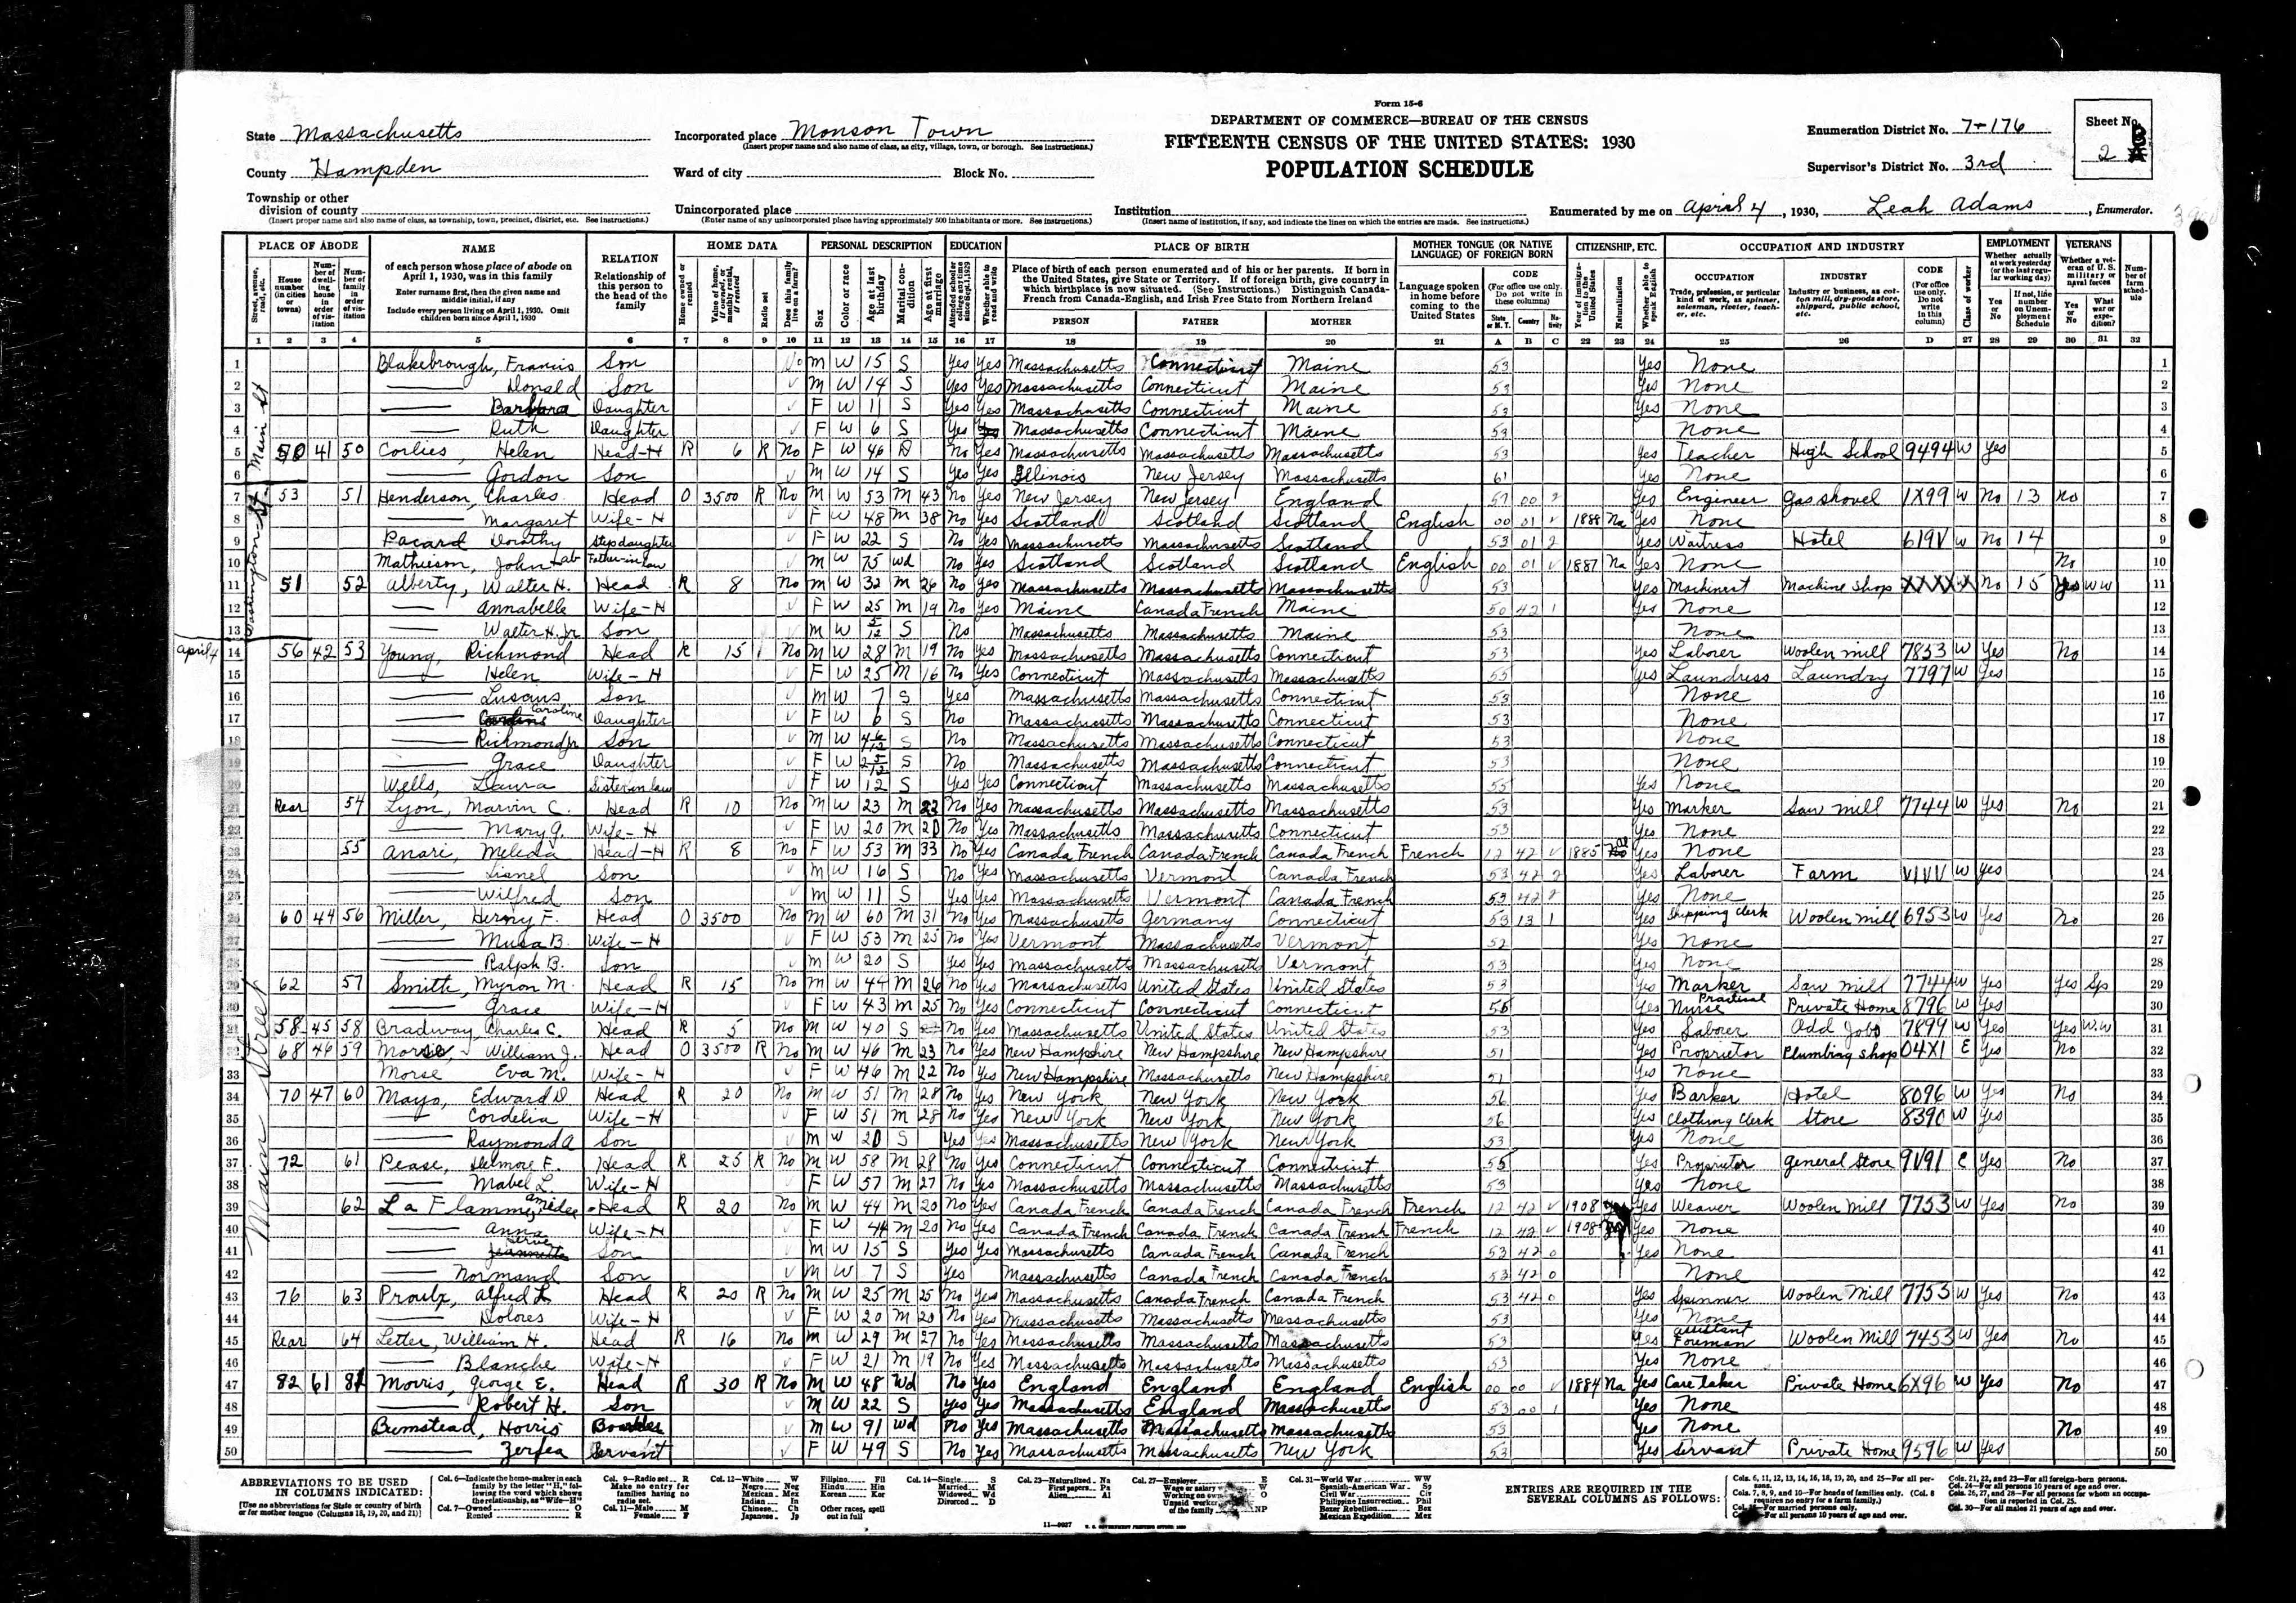 Form 15-6
State Massachusetts
Incorporated place Monson Town
(Insert proper name and also name of class, as city, village, town, or borough. See instructions.)
DEPARTMENT OF COMMERCE—BUREAU OF THE CENSUS
FIFTEENTH CENSUS OF THE UNITED STATES: 1930
POPULATION SCHEDULE
Enumeration District No. 7-176
Sheet No. 2 B
County Hampden
Ward of city
Block No.
Supervisor's District No. 3rd
Township or other division of county
(Insert proper name and also name of class, as township, town, precinct, district, etc. See instructions.)
Unincorporated place
(Enter name of any unincorporated place having approximately 500 inhabitants or more. See instructions.)
Institution
(Insert name of institution, if any, and indicate the lines on which the entries are made. See instructions.)
Enumerated by me on April 4, 1930, Leah Adams, Enumerator.
PLACE OF ABODE NAME RELATION HOME DATA PERSONAL DESCRIPTION EDUCATION PLACE OF BIRTH MOTHER TONGUE (OR NATIVE LANGUAGE) OF FOREIGN BORN CITIZENSHIP, ETC. OCCUPATION AND INDUSTRY EMPLOYMENT VETERANS
1 Blakebrough, Francis Son No M W 15 S Yes Yes Massachusetts Connecticut Maine 53 Yes None 1
2 Donald Son M W 14 S Yes Yes Massachusetts Connecticut Maine 53 Yes None 2
3 Barbara Daughter F W 11 S Yes Yes Massachusetts Connecticut Maine 53 Yes None 3
4 Ruth Daughter F W 6 S Yes Massachusetts Connecticut Maine 53 None 4
5 50 41 50 Corlies, Helen Head-H R 6 R No F W 46 D No Yes Massachusetts Massachusetts Massachusetts 53 Yes Teacher High School 9494 W Yes 5
6 Gordon Son M W 14 S Yes Yes Illinois New Jersey Massachusetts 61 Yes None 6
7 53 51 Henderson, Charles Head O 3500 R No M W 53 M 43 No Yes New Jersey New Jersey England 57 00 2 Yes Engineer Gas shovel 1X99 W No 13 No 7
8 Margaret Wife-H F W 48 M 38 No Yes Scotland Scotland Scotland English 00 01 V 1888 Na Yes None 8
9 Pacard Dorothy Stepdaughter F W 22 S No Yes Massachusetts Massachusetts Scotland 53 01 2 Yes Waitress Hotel 619V W No 14 9
10 Mathieson, John Father-in-law M W 75 Wd No Yes Scotland Scotland Scotland English 00 01 V 1887 Na Yes None No 10
11 51 52 Alberty, Walter H. Head R 8 No M W 32 M 26 No Yes Massachusetts Massachusetts Massachusetts 53 Yes Machinist Machine Shop No 15 Yes WW 11
12 Annabelle Wife-H F W 25 M 19 No Yes Maine Canada French Maine 50 42 1 Yes None 12
13 Walter H. Jr Son M W 5/12 S No Massachusetts Massachusetts Maine 53 None 13
April 4
14 56 42 53 Young, Richmond Head R 15 No M W 28 M 19 No Yes Massachusetts Massachusetts Connecticut 53 Yes Laborer Woolen mill 7853 W Yes No 14
15 Helen Wife-H F W 25 M 16 No Yes Connecticut Massachusetts Massachusetts 55 Yes Laundress Laundry 7797 W Yes 15
16 Luscius Son M W 7 S Yes Massachusetts Massachusetts Connecticut 53 None 16
17 Caroline Daughter F W 6 S No Massachusetts Massachusetts Connecticut 53 None 17
18 Richmond Jr Son M W 4 6/12 S No Massachusetts Massachusetts Connecticut 53 None 18
19 Grace Daughter F W 2 5/12 S No Massachusetts Massachusetts Connecticut 53 None 19
20 Wells, Laura Sister in law F W 12 S Yes Yes Connecticut Massachusetts Massachusetts 55 Yes None 20
21 Rear 54 Lyon, Marvin C. Head R 10 No M W 23 M 22 No Yes Massachusetts Massachusetts Massachusetts 53 Yes Marker Saw mill 7744 W Yes No 21
22 Mary G. Wife-H F W 20 M 20 No Yes Massachusetts Massachusetts Connecticut 53 Yes None 22
23 55 Anari, Meleda Head-H R 8 No F W 53 M 33 No Yes Canada French Canada French Canada French French 12 42 V 1885 Yes None 23
24 Lionel Son M W 16 S No Yes Massachusetts Vermont Canada French 53 42 2 Yes Laborer Farm VIVV W Yes 24
25 Wilfred Son M W 11 S Yes Yes Massachusetts Vermont Canada French 53 42 2 Yes None 25
26 60 44 56 Miller, Henry F. Head O 3500 No M W 60 M 31 No Yes Massachusetts Germany Connecticut 53 13 1 Yes Shipping Clerk Woolen mill 6953 W Yes No 26
27 Musa B. Wife-H F W 53 M 25 No Yes Vermont Massachusetts Vermont 52 Yes None 27
28 Ralph B. Son M W 20 S Yes Yes Massachusetts Massachusetts Vermont 53 Yes None 28
29 62 57 Smith, Myron M. Head R 15 No M W 44 M 26 No Yes Massachusetts United States United States 53 Yes Marker Saw mill 7744 W Yes Yes Sp 29
30 Grace Wife-H F W 43 M 25 No Yes Connecticut Connecticut Connecticut 55 Yes Nurse Practical Private Home 8796 W Yes 30
31 58 45 58 Bradway, Charles C. Head R 5 No M W 40 S No Yes Massachusetts United States United States 53 Yes Laborer Odd Jobs 7899 W Yes Yes W.W 31
32 68 46 59 Morse, William J. Head O 3500 R No M W 46 M 23 No Yes New Hampshire New Hampshire New Hampshire 51 Yes Proprietor Plumbing shop 04X1 E Yes No 32
33 Morse Eva M. Wife-H F W 46 M 22 No Yes New Hampshire Massachusetts New Hampshire 51 Yes None 33
34 70 47 60 Mayo, Edward D Head R 20 No M W 51 M 28 No Yes New York New York New York 56 Yes Barker Hotel 8096 W Yes No 34
35 Cordelia Wife-H F W 51 M 28 No Yes New York New York New York 56 Yes Clothing Clerk Store 8390 W Yes 35
36 Raymond A Son M W 20 S Yes Yes Massachusetts New York New York 53 Yes None 36
37 72 61 Pease, Delmore F. Head R 25 R No M W 58 M 28 No Yes Connecticut Connecticut Connecticut 55 Yes Proprietor General Store 9V91 E Yes No 37
38 Mabel L Wife-H F W 57 M 27 No Yes Massachusetts Massachusetts Massachusetts 53 Yes None 38
39 62 La Flamme, Amidee Head R 20 No M W 44 M 20 No Yes Canada French Canada French Canada French French 12 42 V 1908 Yes Weaver Woolen Mill 7753 W Yes No 39
40 Anna Wife-H F W 44 M 20 No Yes Canada French Canada French Canada French French 12 42 V 1908 Yes None 40
41 Son M W 15 S Yes Yes Massachusetts Canada French Canada French 53 42 0 Yes None 41
42 Normand Son M W 7 S Yes Massachusetts Canada French Canada French 53 42 0 None 42
43 76 63 Proulx, Alfred L Head R 20 R No M W 25 M 25 No Yes Massachusetts Canada French Canada French 53 42 0 Yes Spinner Woolen Mill 7753 W Yes No 43
44 Dolores Wife-H F W 20 M 20 No Yes Massachusetts Massachusetts Massachusetts 53 Yes None 44
45 Rear 64 Letter, William H. Head R 16 No M W 29 M 27 No Yes Massachusetts Massachusetts Massachusetts 53 Yes Assistant Foreman Woolen Mill 7453 W Yes No 45
46 Blanche Wife-H F W 21 M 19 No Yes Massachusetts Massachusetts Massachusetts 53 Yes None 46
47 82 61 81 Morris, George E. Head R 30 R No M W 48 Wd No Yes England England England English 00 00 V 1884 Na Yes Care taker Private Home 6X96 W Yes No 47
48 Robert H. Son M W 22 S Yes Yes Massachusetts England Massachusetts 53 00 1 Yes None 48
49 Bumstead, Horris Boarder M W 91 Wd No Yes Massachusetts Massachusetts Massachusetts 53 Yes None No 49
50 Servant F W 49 S No Yes Massachusetts Massachusetts New York 53 Yes Servant Private Home 9596 W Yes 50
Main St
Washington St.
Main Street
ABBREVIATIONS TO BE USED IN COLUMNS INDICATED:
[Use no abbreviations for State or country of birth or for mother tongue (Columns 18, 19, 20, and 21)]
ENTRIES ARE REQUIRED IN THE SEVERAL COLUMNS AS FOLLOWS: